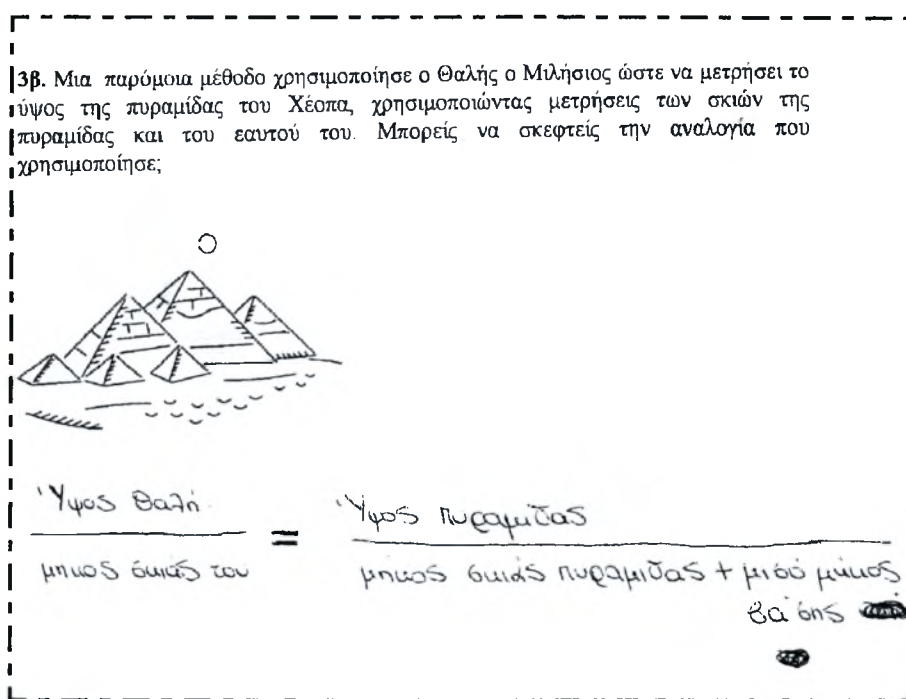 3β. Μια παρόμοια μέθοδο χρησιμοποίησε ο Θαλής ο Μιλήσιος ώστε να μετρήσει το
ύψος της πυραμίδας του Χέοπα, χρησιμοποιώντας μετρήσεις των σκιών της
πυραμίδας και του εαυτού του. Μπορείς να σκεφτείς την αναλογία που
χρησιμοποίησε;
Ύψος Θαλή = Ύψος πυραμίδας
μήκος σκιάς του μήκος σκιάς πυραμίδας + μισό μήκος
βάσης